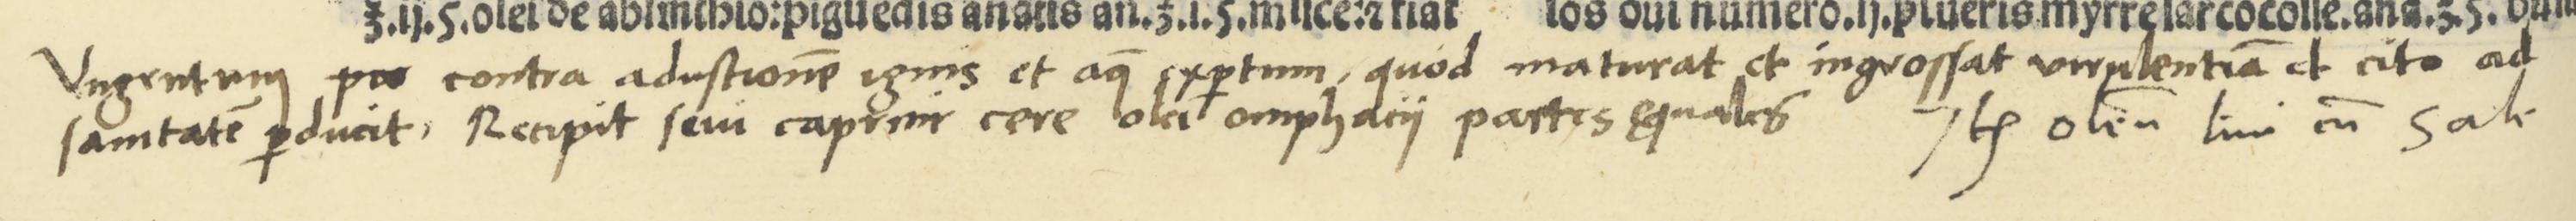 ʒ.ij.5. olei de absinthio: piguedis anatis an.ʒ.i.5. misce: ⁊ fiat
los oui numero.ij. plueris myrre sarcocolle. ana.ʒ.5.
Vngentum contra adustionẽ ignis et aq̃ exptum, quod maturat et ingrossat virulentiã et cito ad
sanitatẽ pducit, Recipit seui caprini cere olei omphacii partes ęquales Itẽ oleũ lini cũ sale